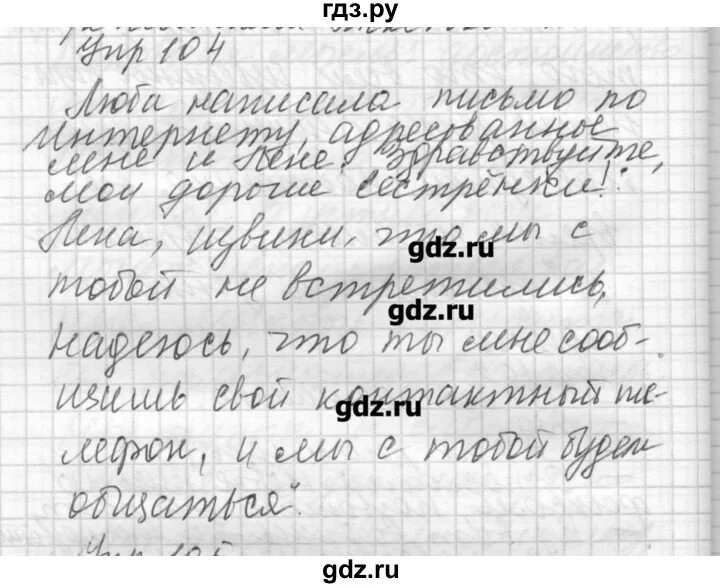 гдз.ру
Упр 104
Люба написала письмо по
Интернету, адресованное
мне и Лене: „Здравствуйте,
мои дорогие сестрёнки!
Лена, извини, что мы с
gdz.ru
тобой не встретились,
gdz.ru
надеюсь, что ты мне сооб-
щишь свой контактный те-
gdz.ru
лефон, и мы с тобой будем
общаться".
Упр 105
gdz.ru